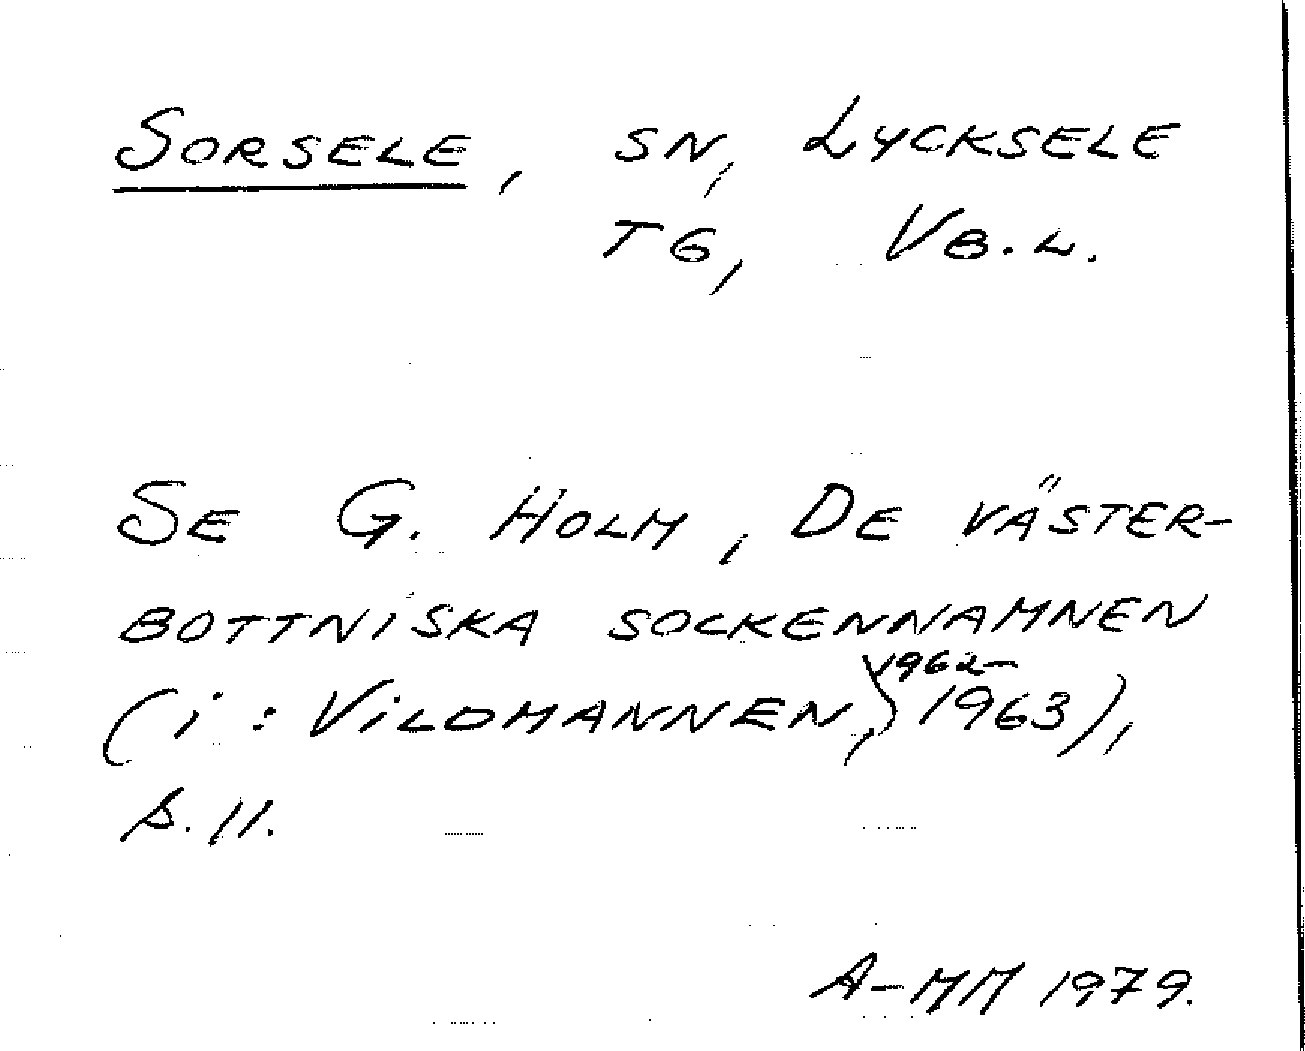 SORSELE, SN, LYCKSELE
TG, VB.L.
SE G. HOLM, DE VÄSTER-
BOTTNISKA SOCKENNAMNEN
(i: VILDMANNEN, 1962-1963),
s. 11.
A-MM 1979.